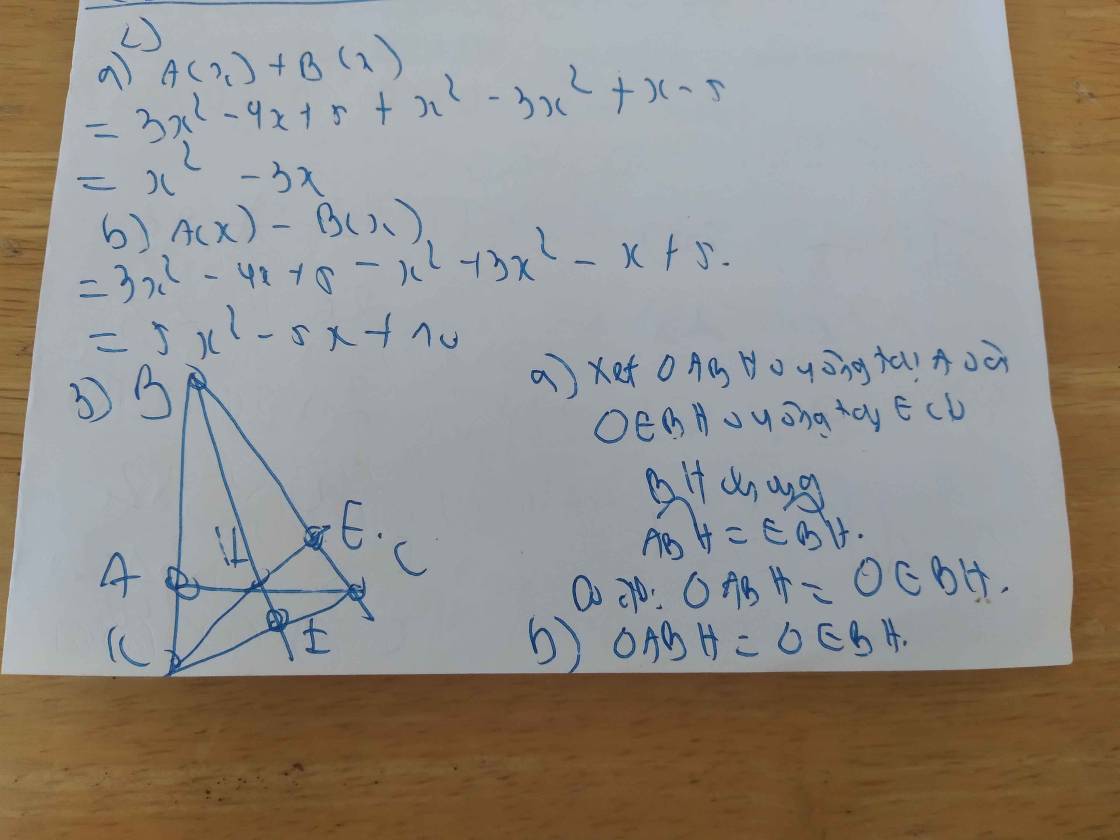 c)
a) A(x) + B(x)
= 3x² - 4x + 5 + x² - 3x² + x - 5
= x² - 3x
b) A(x) - B(x)
= 3x² - 4x + 5 - x² + 3x² - x + 5.
= 5x² - 5x + 10
3) B
E.
H
C
A
K
I
a) Xét △ABH vuông tại A và
△EBH vuông tại E có
BH chung
ABH = EBH.
△ABH = △EBH.
b) △ABH = △EBH.